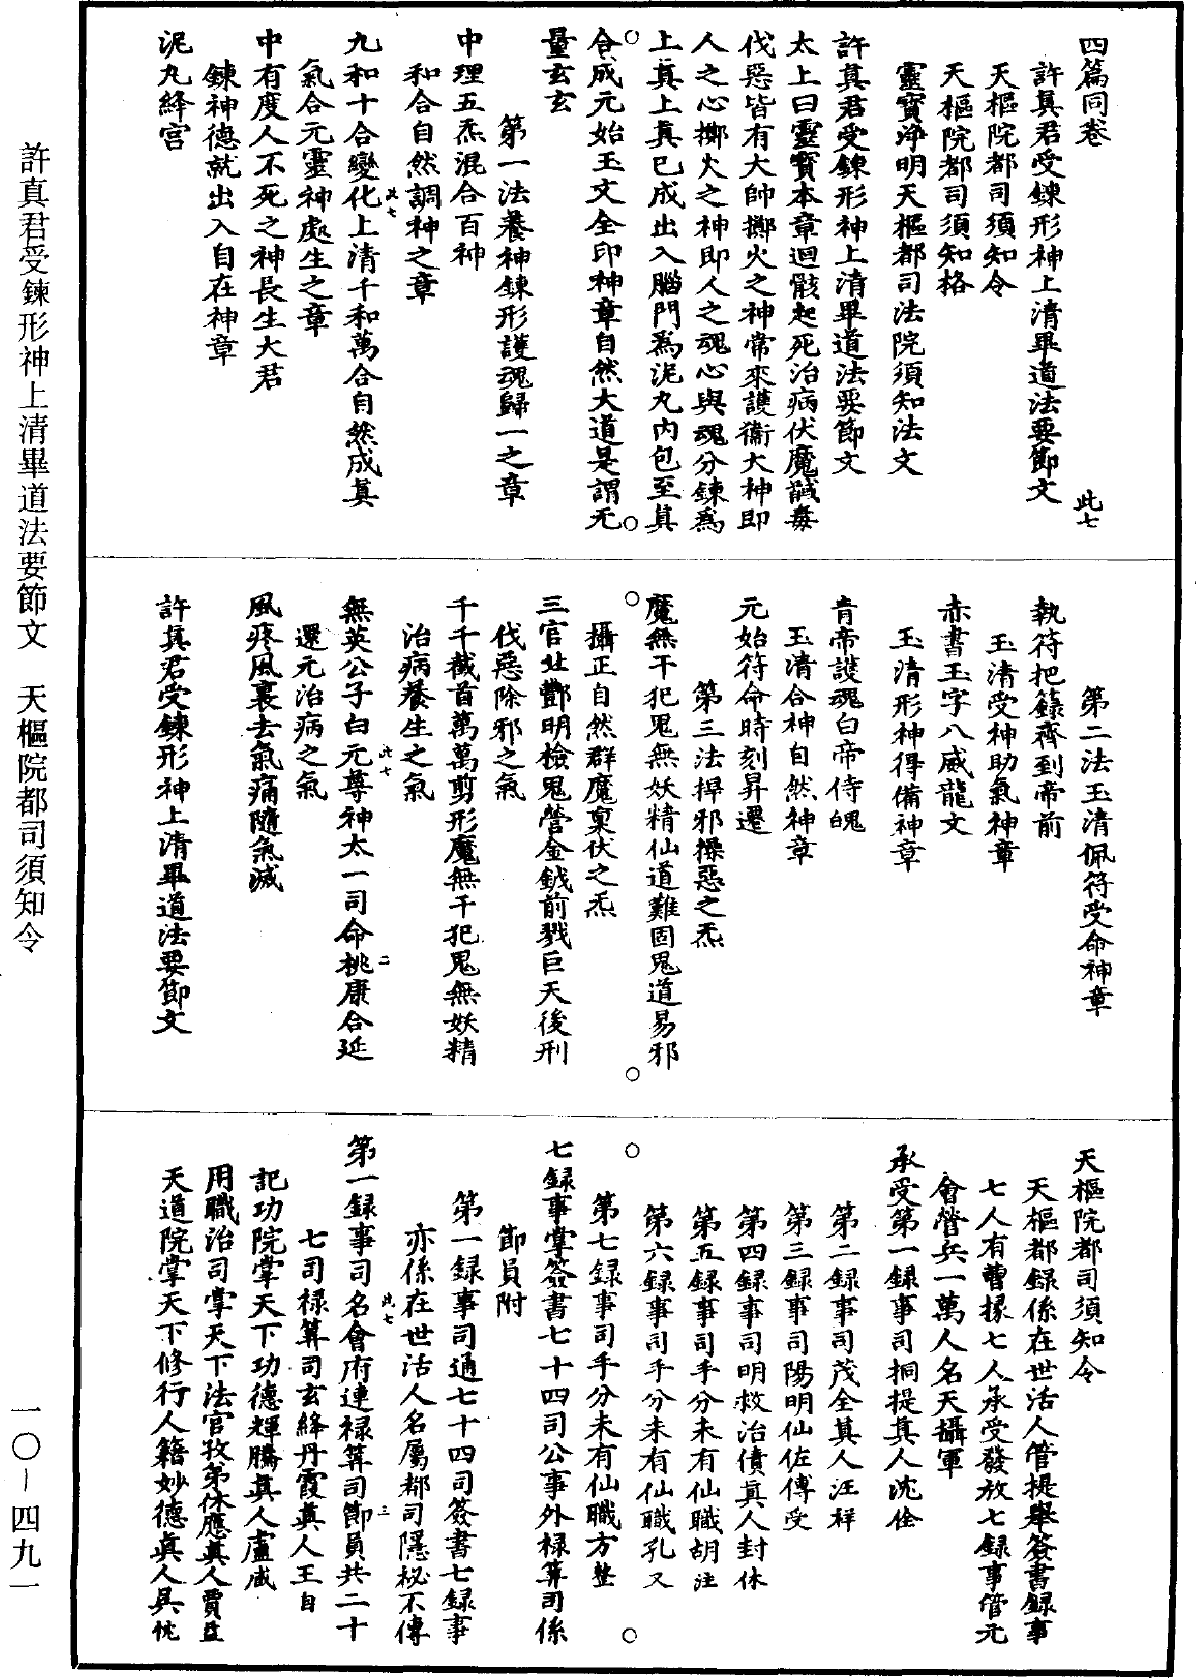 四篇同卷
此七
許真君受鍊形神上清畢道法要節文
天樞院都司須知令
天樞院都司須知格
靈寶淨明天樞都司法院須知法文
許真君受鍊形神上清畢道法要節文
太上曰靈寶本章迴骸起死治病伏魔馘毒
伐惡皆有大帥擲火之神常來護衞大神即
人之心擲火之神即人之魂心與魂分鍊爲
上真上真已成出入腦門爲泥丸內包至真
合成元始玉文全印神章自然大道是謂无
量玄玄
第一法養神鍊形護魂歸一之章
中理五炁混合百神
和合自然調神之章
九和十合變化上清千和萬合自然成真
此七
氣合元靈神處生之章
中有度人不死之神長生大君
鍊神德就出入自在神章
泥丸絳宮
第二法玉清佩符受命神章
執符把籙齊到帝前
玉清受神助氣神章
赤書玉字八威龍文
玉清形神得備神章
青帝護魂白帝侍魄
玉清合神自然神章
元始符命時刻昇遷
第三法捍邪操惡之炁
魔無干犯鬼無妖精仙道難固鬼道易邪
攝正自然群魔稟伏之炁
三官北酆明檢鬼營金鉞前戮巨天後刑
伐惡除邪之氣
千千截首萬萬剪形魔無干犯鬼無妖精
治病養生之氣
無英公子白元尊神太一司命桃康合延
此七
二
還元治病之氣
風疼風裏去氣痛隨氣滅
許真君受鍊形神上清畢道法要節文
天樞院都司須知令
天樞都録係在世活人管提舉簽書録事
七人有曹掾七人承受發放七録事管元
會營兵一萬人名天攝軍
承受第一録事司桐提真人沈佺
第二録事司茂全真人汪祥
第三録事司陽明仙佐傅受
第四録事司明救治債真人封休
第五録事司手分未有仙職胡注
第六録事司手分未有仙職孔又
第七録事司手分未有仙職方整
七録事掌簽書七十四司公事外禄筭司係
節員附
第一録事司通七十四司簽書七録事
亦係在世活人名屬都司隱秘不傳
此七
三
第一録事司名會府連禄筭司節員共二十
七司禄筭司玄絳丹霞真人王自
記功院掌天下功德輝騰真人盧咸
用職治司掌天下法官孜弟休應真人賈
天道院掌天下修行人籍妙德真人吳忱
許真君受鍊形神上清畢道法要節文　天樞院都司須知令
一〇－四九一